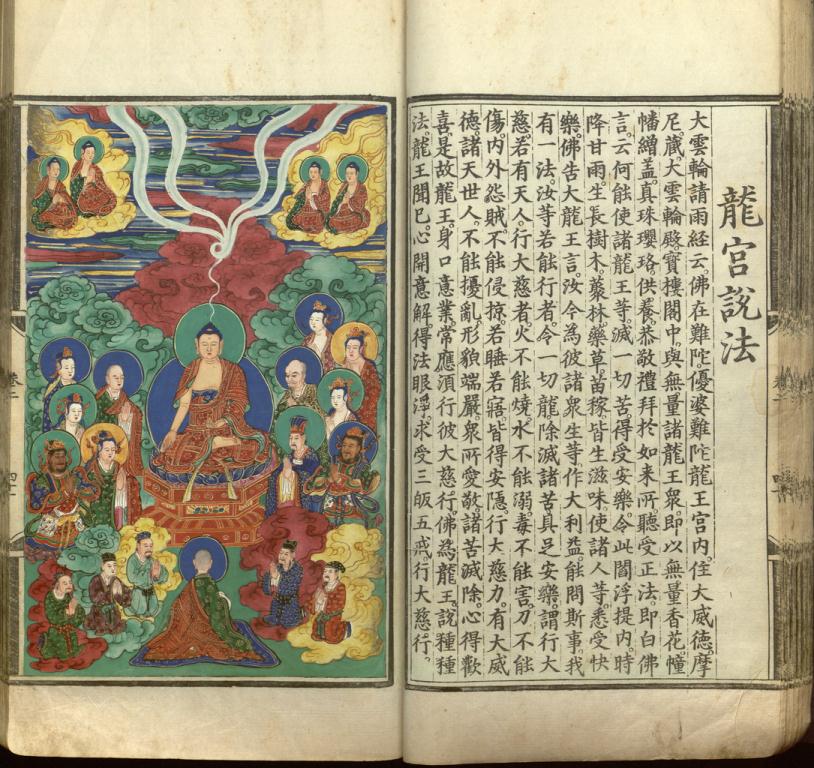 龍宮說法
大雲輪請雨経云。佛在難陀優婆難陀龍王宮内。住大威德摩
尼藏大雲輪殿寶樓閣中。與無量諸龍王衆。即以無量香花幢
幡繒盖。真珠瓔珞。供養恭敬禮拜於如来所。聽受正法。即白佛
言。云何能使諸龍王等。滅一切苦得受安樂。令此閻浮提内。時
降甘雨。生長樹木。藂林藥草。苗稼皆生滋味。使諸人等。悉受快
樂。佛告大龍王言。汝今為彼諸衆生等。作大利益。能問斯事。我
有一法。汝等若能行者。令一切龍。除滅諸苦具足安樂。謂行大
慈。若有天人。行大慈者。火不能燒。水不能溺。毒不能害。刀不能
傷。内外怨賊。不能侵掠。若睡若寤。皆得安隱。行大慈力。有大威
德。諸天世人。不能擾亂。形貌端嚴。衆所愛敬。諸苦滅除。心得歡
喜。是故龍王。身口意業。常應湏行彼大慈行。佛為龍王。說種種
法。龍王聞已。心開意解。得法眼淨。求受三皈五戒。行大慈行。